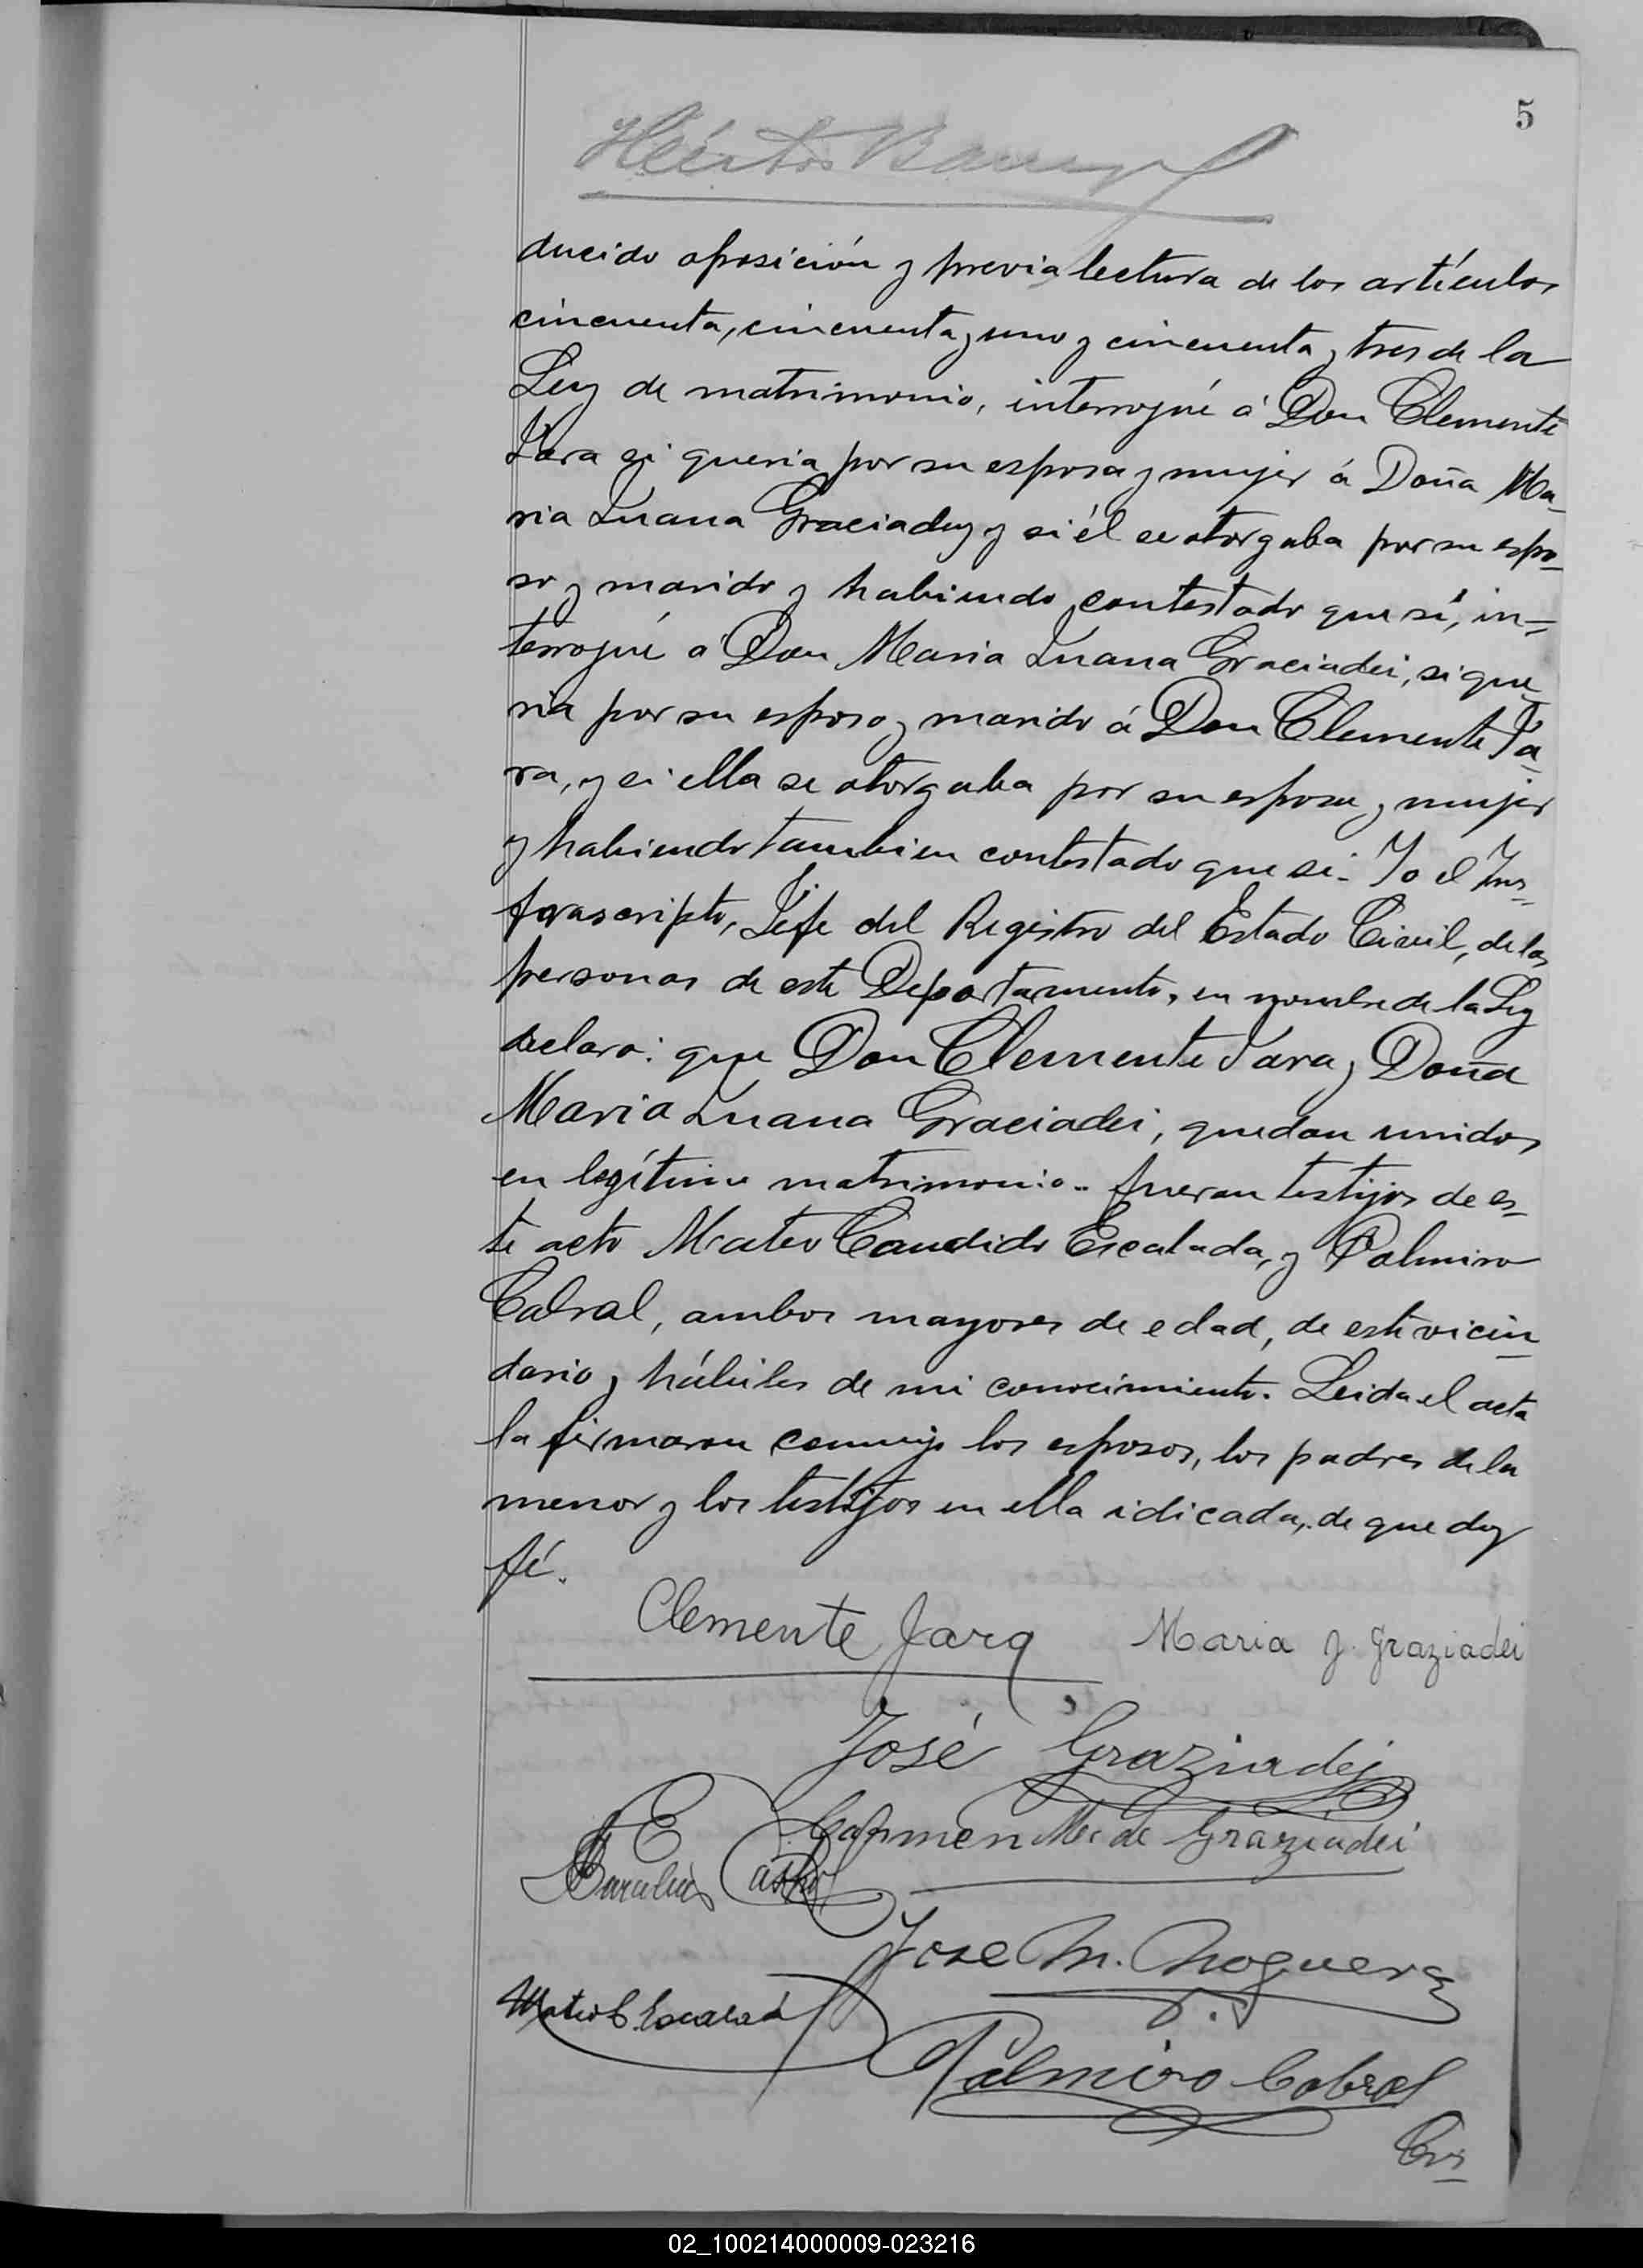 5
Héctor
ducido oposición y previa lectura de los artículos
cincuenta, cincuenta y uno y cincuenta y tres de la
Ley de matrimonio, interrogué á Don Clemente
Jara si queria por su esposa y mujer á Doña Ma-
ria Juana Graciadey y si él se otorgaba por su espo-
so y marido y habiendo contestado que sí, in-
terrogué a Don Maria Juana Graciadei, si que-
ria por su esposo y marido á Don Clemente Ja-
ra, y si ella se otorgaba por su esposa y mujer
y habiendo tambien contestado que si- Yo el Ins-
frascripto, Jefe del Registro del Estado Civil, de las
personas de este Departamento, en nombre de la Ley
declaro: que Don Clemente Jara y Doña
Maria Juana Graciadei, quedan unidos
en legítimo matrimonio.. fueron testigos de es-
te acto Mateo Candido Escalada, y Palmiro
Cabral, ambos mayores de edad, de este vecin-
dario y hábiles de mi conocimiento. Leida el acta
la firmaron conmigo los esposos, los padres de la
menor y los testigos en ella idicada, de que doy
fé.
Clemente Jara Maria J. Graziadei
José Graziadei
Carmen M. de Graziadei
Jose M. Noguera
Mateo C. Escalada
Palmiro Cabral
02_100214000009-023216